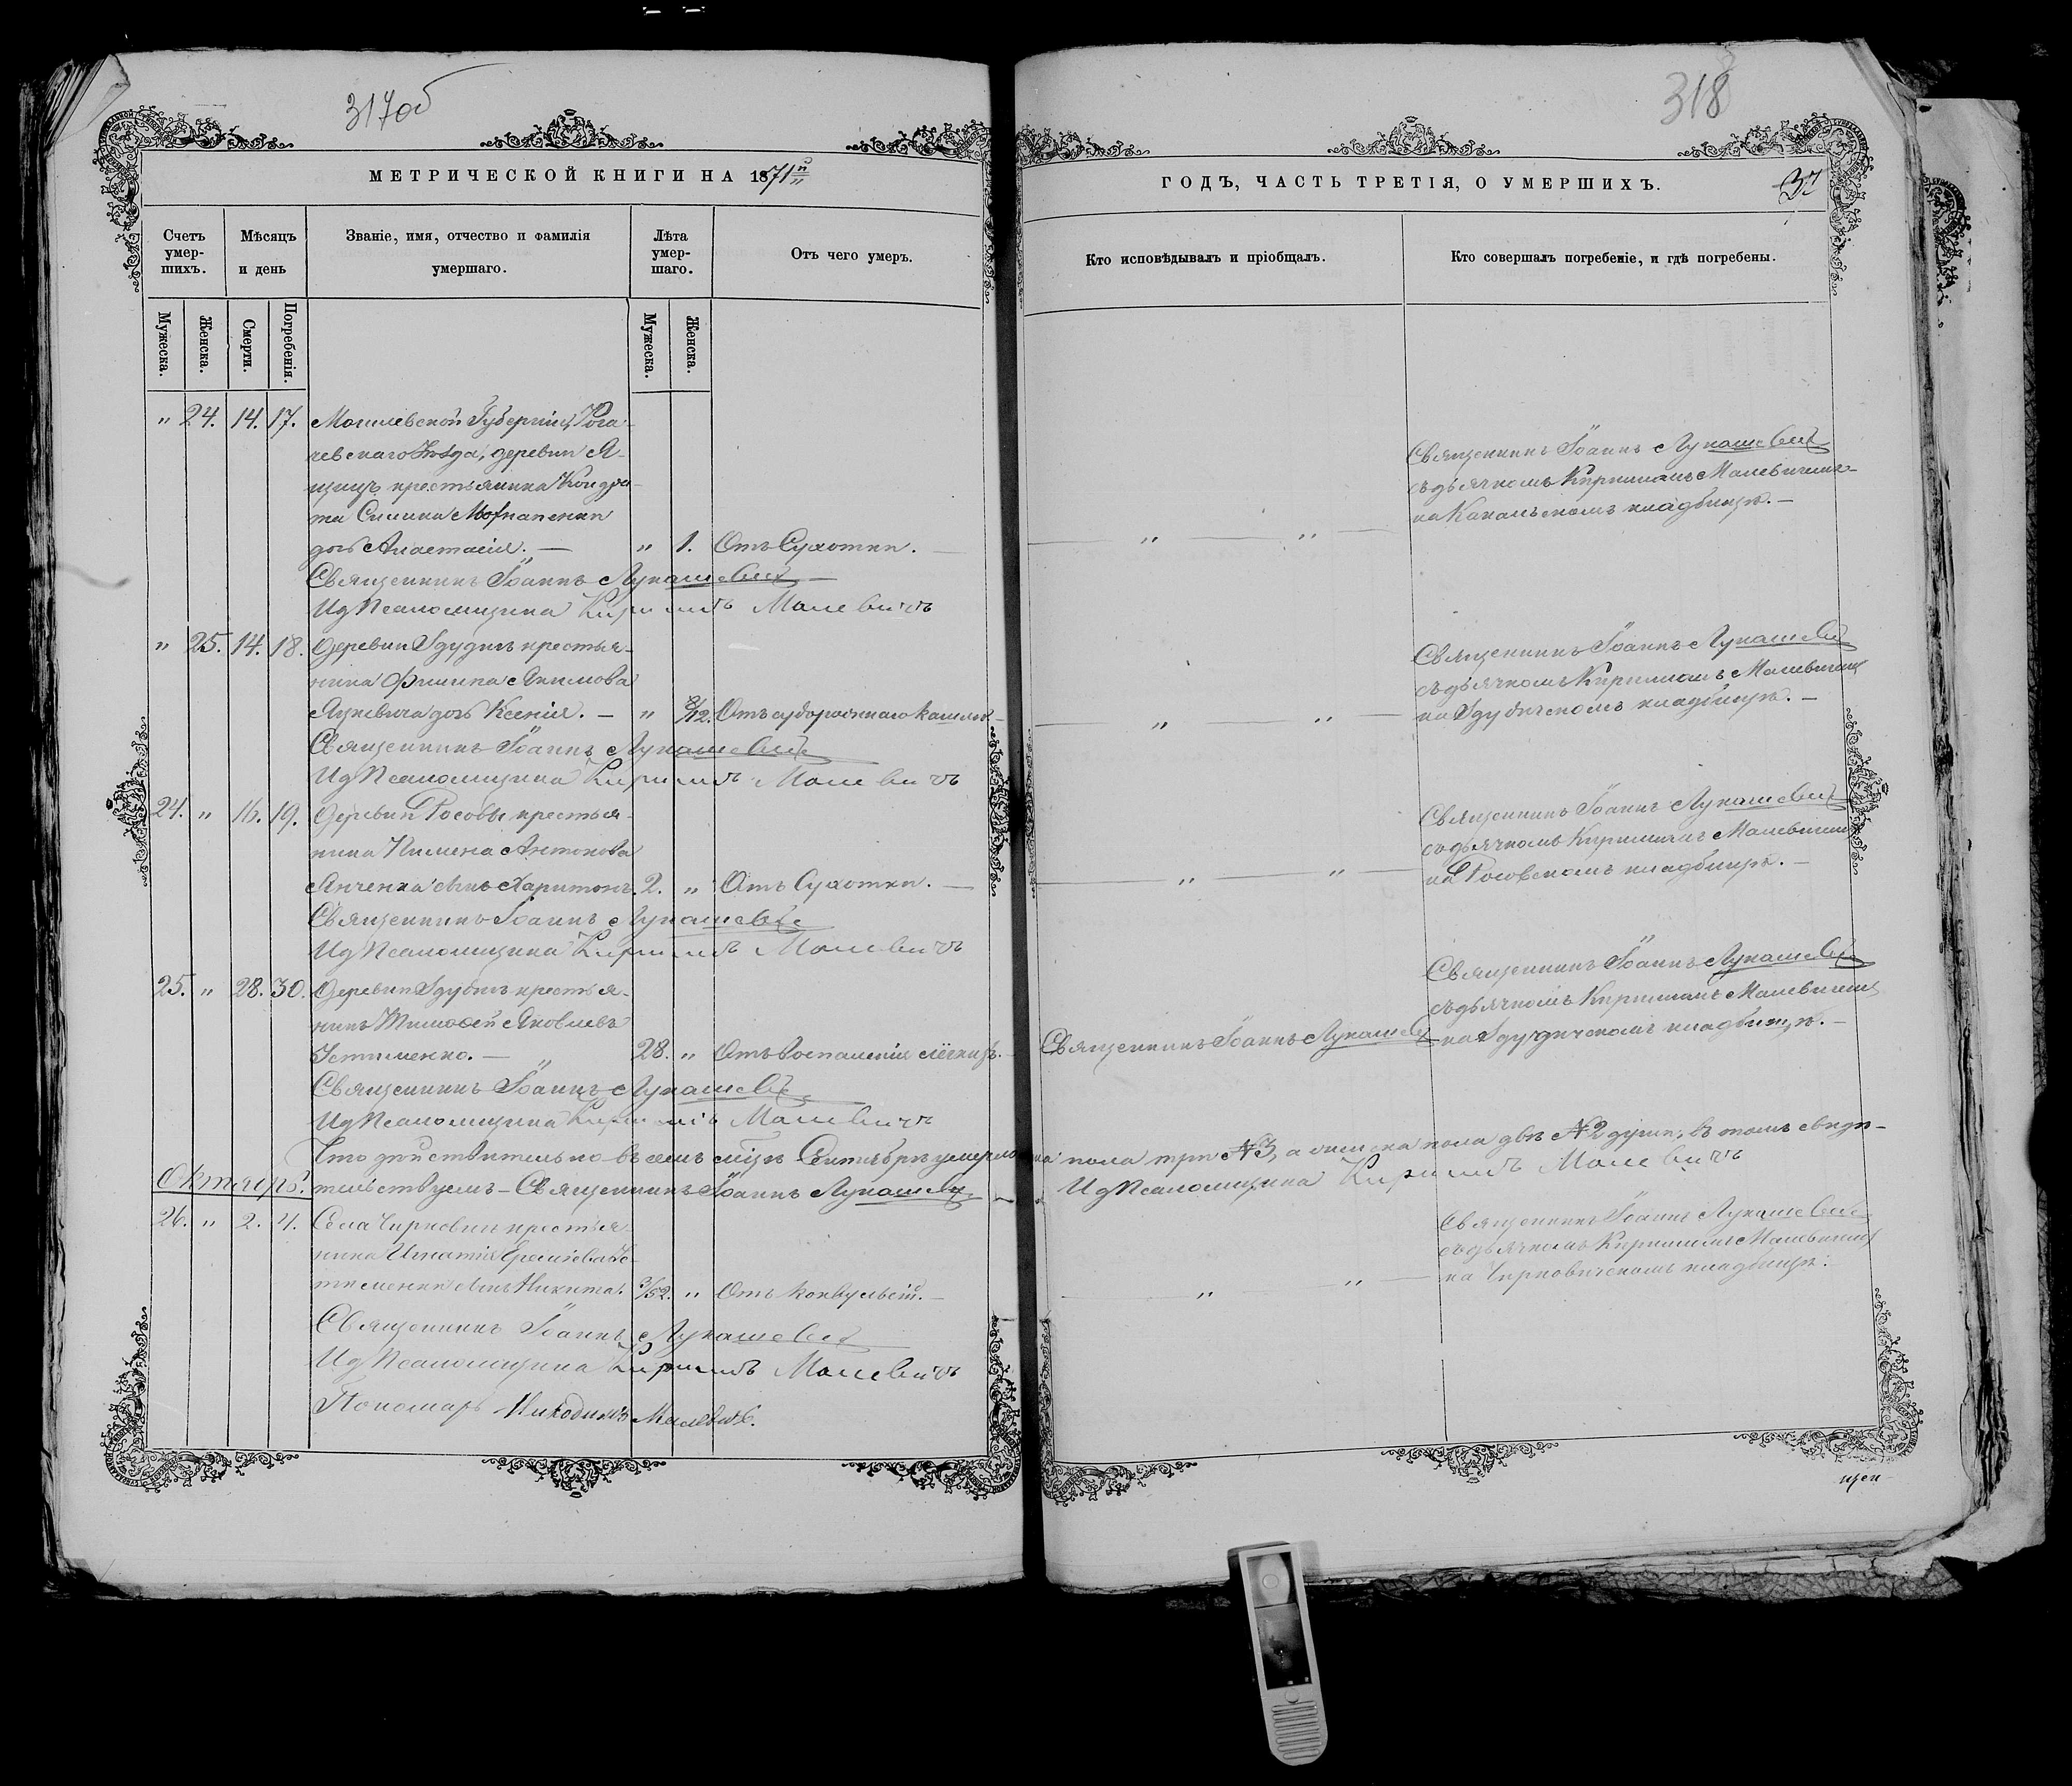 317об
МЕТРИЧЕСКОЙ КНИГИ НА 1871й
Счетъ умер-шихъ.
Мѣсяцъ и день
Званіе, имя, отчество и фамилія умершаго.
Лѣта умер-шаго.
Отъ чего умеръ.
Мужеска.
Женска.
Смерти.
Погребенія.
Мужеска.
Женска.
" 24. 14. 17. Могилевской Губерніи, Рога-
чевскаго Уѣзда, деревни
крестьянина Кондра-
та
дочь Анастасія. — " 1. Отъ Сухотки. —
Священникъ Іоаннъ Лукашевичъ
Ид Псаломщика Кириллъ Малевичъ
" 25. 14. 18. Деревни Здудичъ крестья-
нина Филипа Акимова
Яцкевича дочь Ксенія. — " 8/12. Отъ судорожнаго кашля —
Священникъ Іоаннъ Лукашевичъ
Ид Псаломщика Кириллъ Малевичъ
24. " 16. 19. Деревни Росовы крестья-
нина Пимена Антонова
Янченка сынъ Харитонъ. 2. " Отъ Сухотки. —
Священникъ Іоаннъ Лукашевичъ
Ид Псаломщика Кириллъ Малевичъ
25. " 28. 30. Деревни Здудичъ крестья-
нинъ Тимофей Яковлевъ
Устименко. — " 28. " Отъ воспаленія лёгкихъ. —
Священникъ Іоаннъ Лукашевичъ
Ид Псаломщика Кириллъ Малевичъ
Что дѣйствительно въ семъ м-цѣ Сентябрѣ умерло
Октябрь. тельствуемъ — Священникъ Іоаннъ Лукашевичъ
26. " 2. 4. Села Чирковичъ крестья-
нина Игнатія Ус-
тименки сынъ Никита. 3/52. " Отъ конвульсій. —
Священникъ Іоаннъ Лукашевичъ
Ид Псаломщика Кириллъ Малевичъ
Пономарь Никодимъ Малевичъ.
318
ГОДЪ, ЧАСТЬ ТРЕТІЯ, О УМЕРШИХЪ.
37
Кто исповѣдывалъ и пріобщалъ.
Кто совершалъ погребеніе, и гдѣ погребены.
Священникъ Іоаннъ Лукашевичъ
съ дьячкомъ Кирилломъ Малевичемъ
на кладбищѣ. —
" "
Священникъ Іоаннъ Лукашевичъ
съ дьячкомъ Кирилломъ Малевичемъ
" " на Здудичскомъ кладбищѣ. —
Священникъ Іоаннъ Лукашевичъ
съ дьячкомъ Кирилломъ Малевичемъ
" " на Росовскомъ кладбищѣ. —
Священникъ Іоаннъ Лукашевичъ
съ дьячкомъ Кирилломъ Малевичемъ
Священникъ Іоаннъ Лукашевичъ на Здудичскомъ кладбищѣ. —
пола три №3, а женска пола двѣ №2 души, въ томъ свидѣ-
Ид Псаломщика Кириллъ Малевичъ
Священникъ Іоаннъ Лукашевичъ
съ дьячкомъ Кирилломъ Малевичемъ
" " на Чирковичскомъ кладбищѣ.